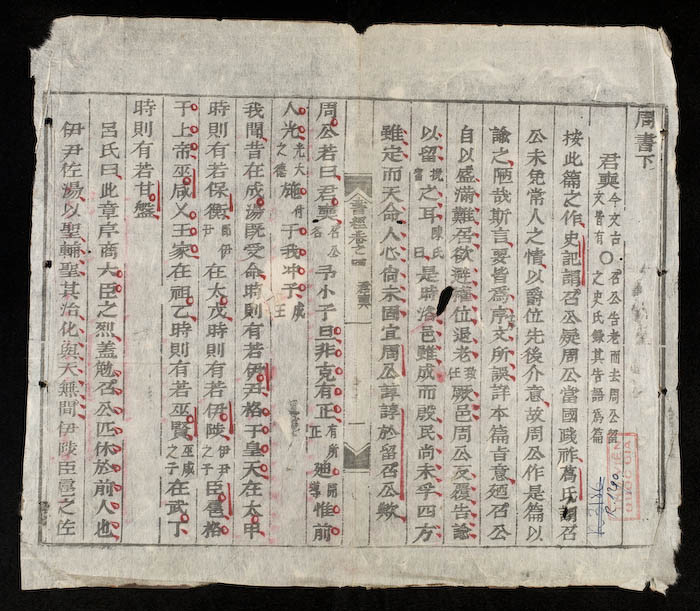 周書下
君奭 今文古文皆有 ○ 召公告老而去周公留之史氏錄其告語爲篇
按此篇之作史記謂召公疑周公當國踐祚葛氏謂召
公未免常人之情以爵位先後介意故周公作是篇以
諭之陋哉斯言要皆爲序文所誤詳本篇旨意廼召公
自以盛滿難居欲避權位退老 致仕 厥邑周公反覆告諭
以留 挽留 之耳 陳氏曰 是時洛邑雖成而殷民尚未孚四方
雖定而天命人心尚未固宜周公諄諄於留召公歟
書經卷之四 君奭 一
周公若曰君奭 召公名 予小子旦非克有正 有所正 迪 開導 惟前
人光 光大之德 施 付 于我冲子 成王
我聞昔在成湯既受命時則有若伊尹格于皇天在太甲
時則有若保衡 即伊尹 在太戊時則有若伊陟 伊尹之子 臣扈格
于上帝巫咸乂王家在祖乙時則有若巫賢 巫咸之子 在武丁
時則有若甘盤
呂氏曰此章序商大臣之烈蓋勉召公匹休於前人也
伊尹佐湯以聖輔聖其治化與天無間伊陟臣扈之佐